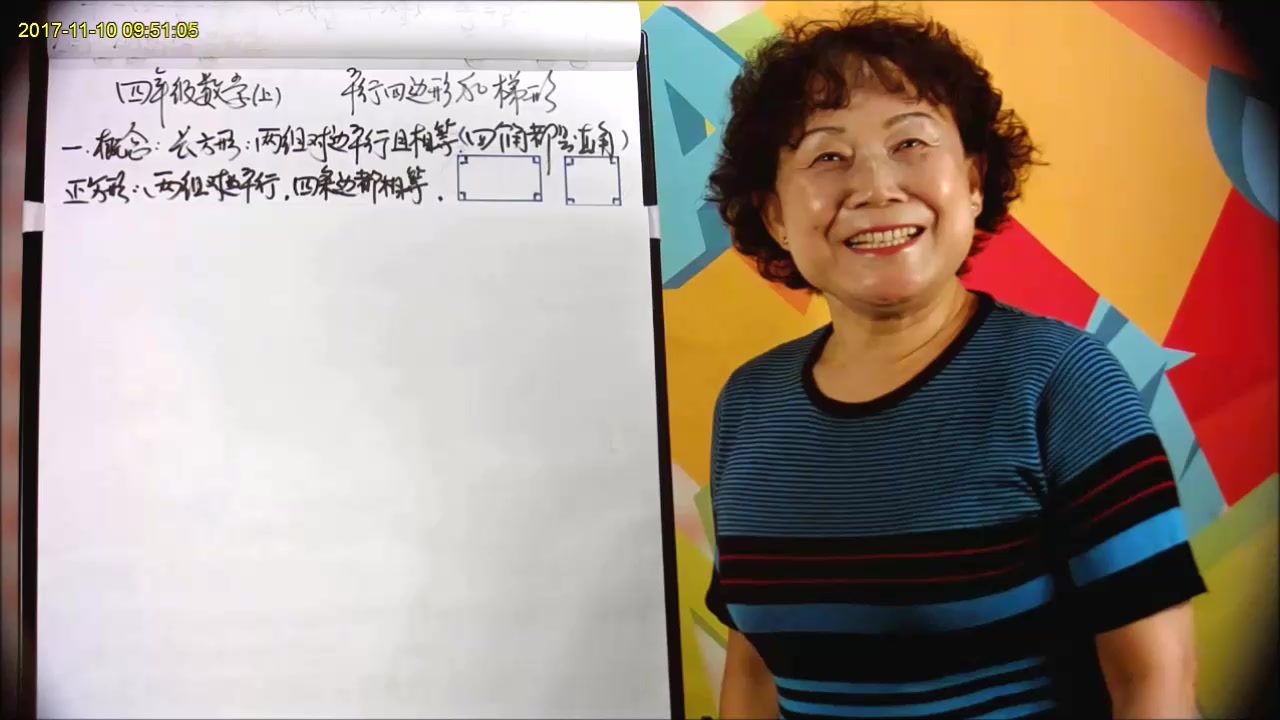 2017-11-10 09:51:05
四年级数学(上) 平行四边形和梯形
一.概念:长方形:两组对边平行且相等(四个角都是直角)
正方形:两组对边平行,四条边都相等.